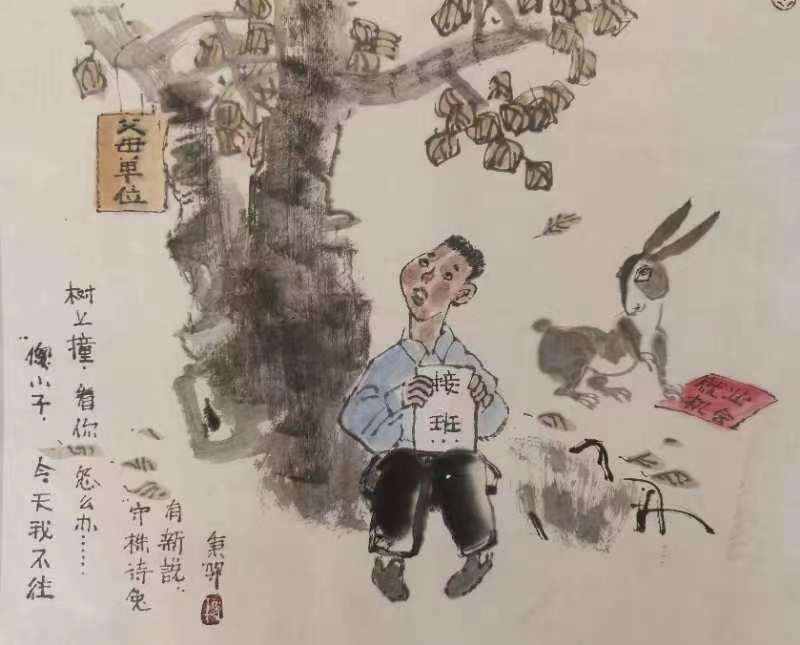 父母单位
接班…
就业
机会
“傻小子,今天我不往
树上撞,看你怎么办……
“守株待兔
有新說.